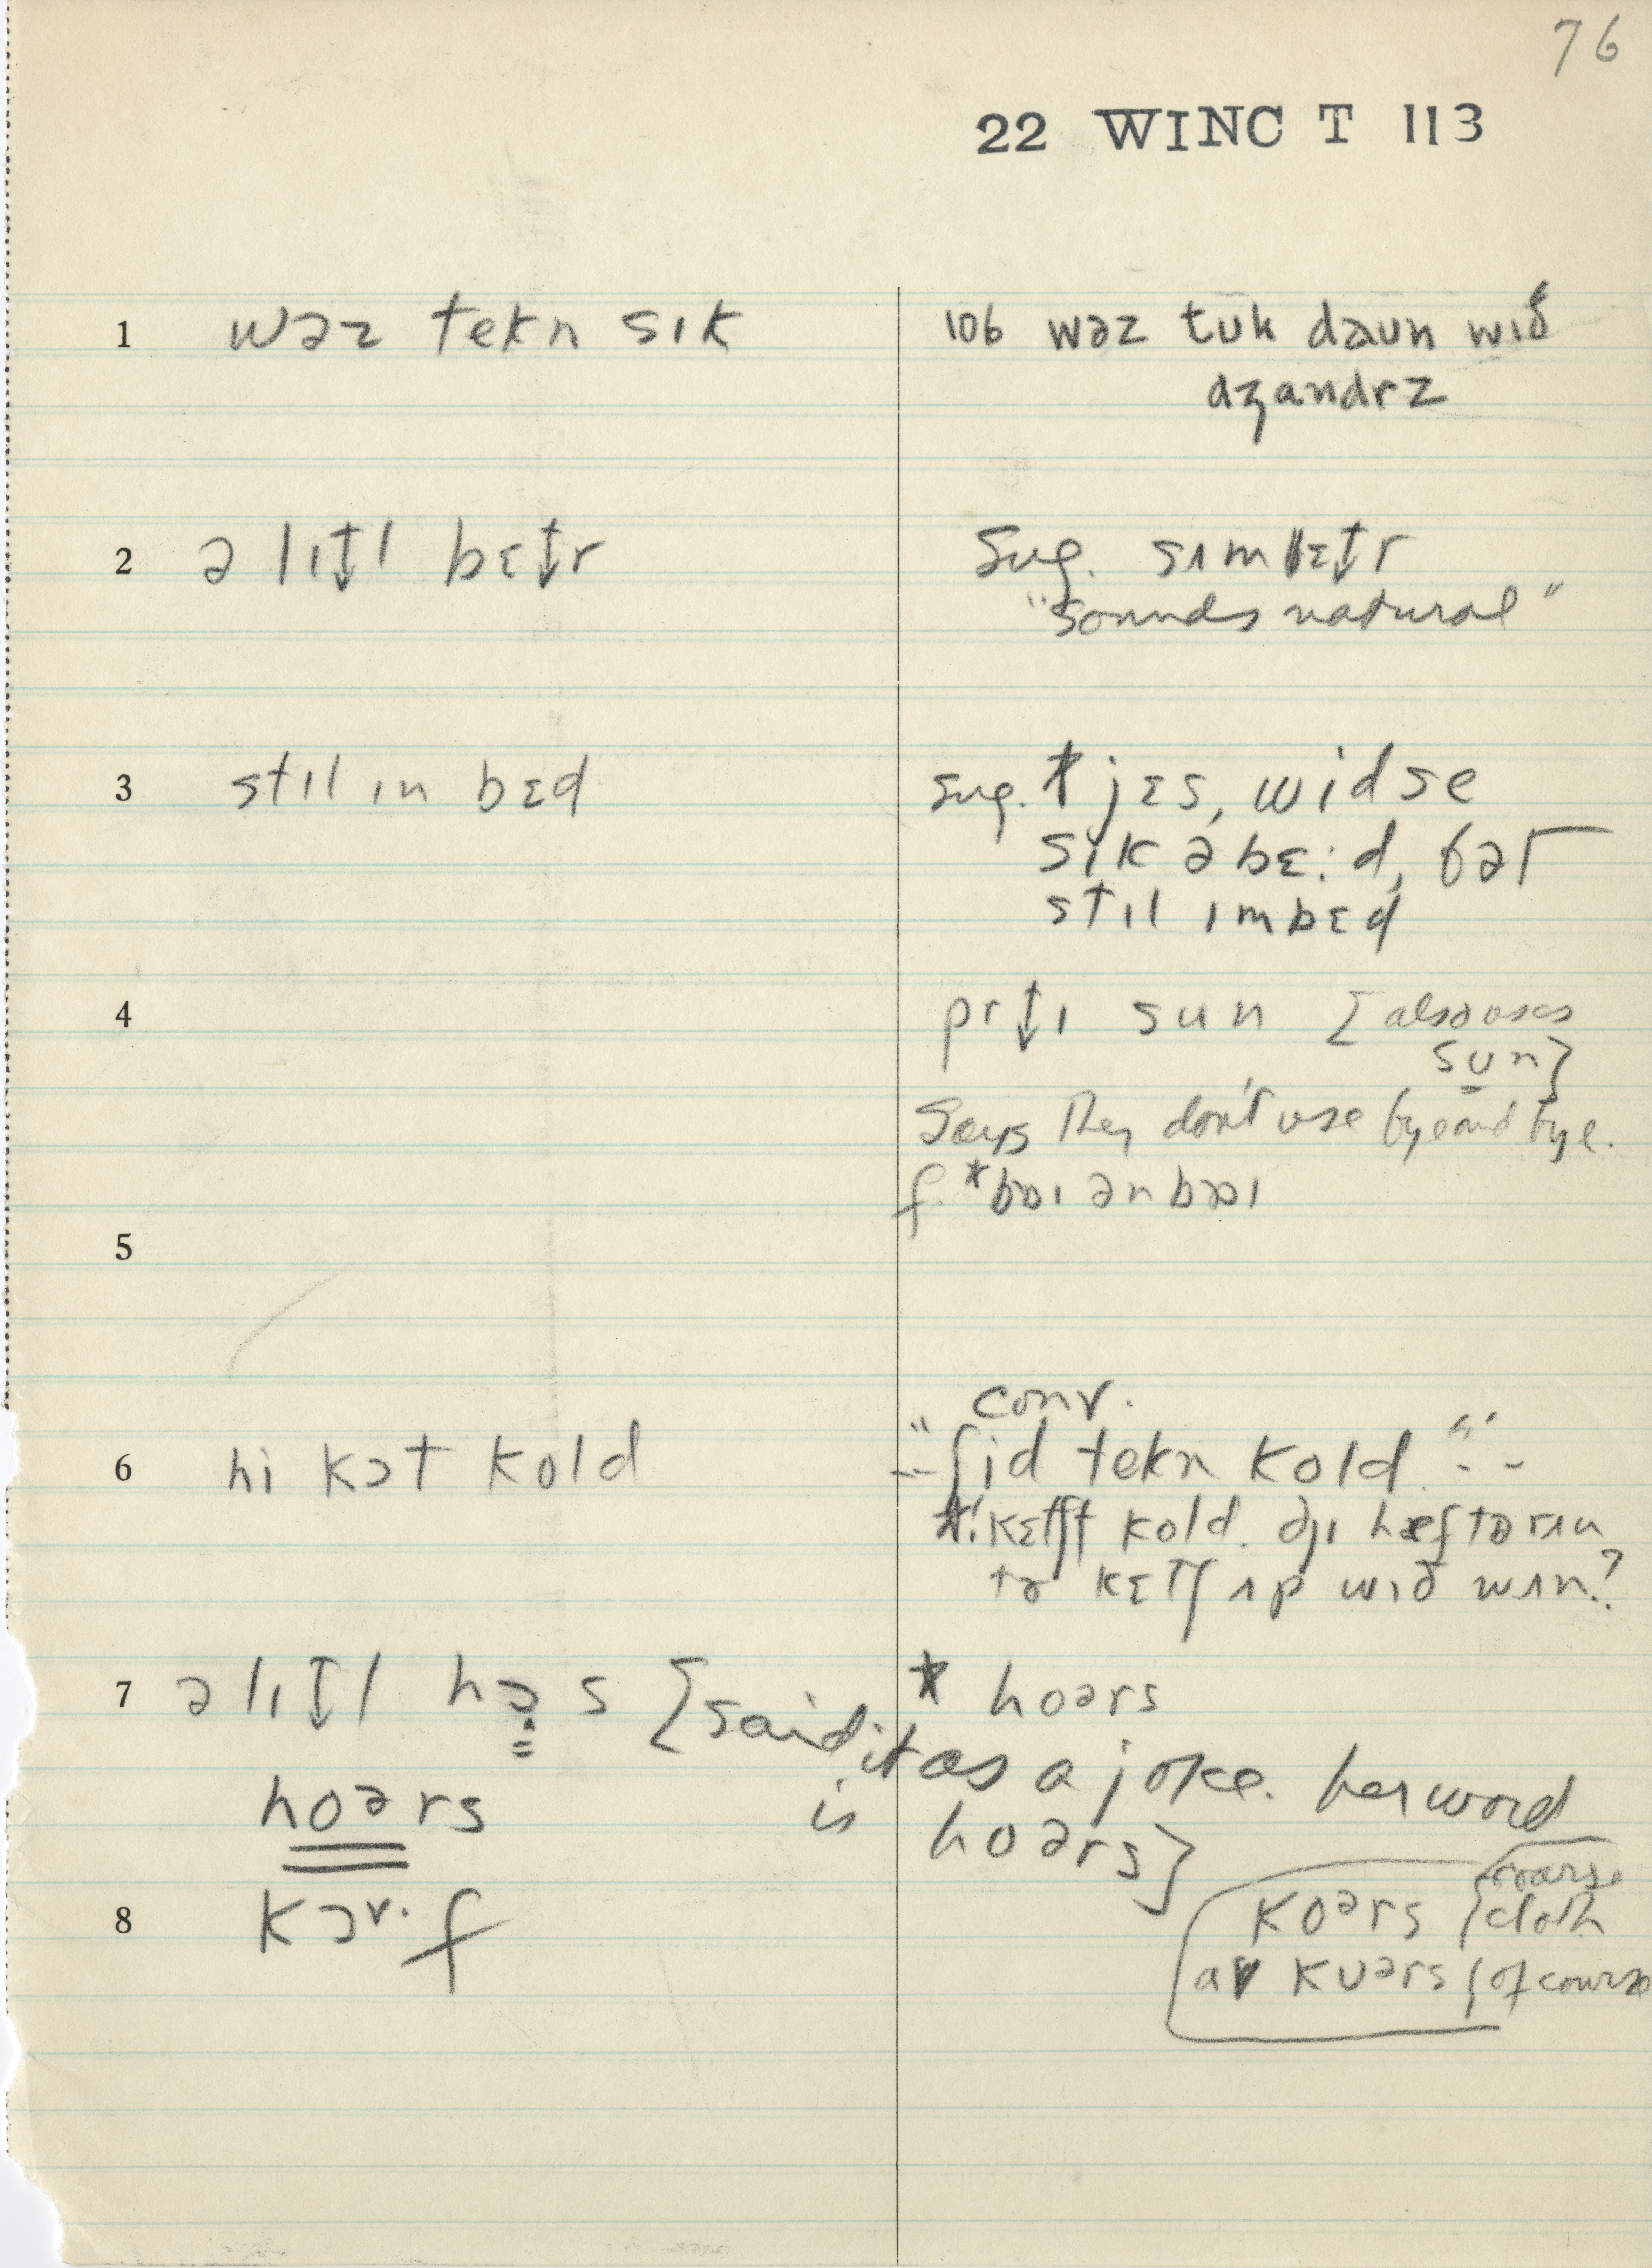 76
22 WINC T 113
1 wəz tekn sɪk
106 wəz tuk daun wɪð
dʒandrz
2 ə lɪt̬l bɛt̬r
Sug. sʌm bɛt̬r
"sounds natural"
3 stɪl ɪn bɛd
sug. * jɛs, widse
sɪk əbɛ:d, bət
stɪl ɪmbɛd
4 prt̬ɪ sun [also uses
sun]
Says they don't use bye and bye.
f. *bɒɪ ən bɒɪ
5
6 hi kɔt kold
conv.
"--ʃid tekn kold"--
kɛtʃt kold. ðɪ hæftə rʌn
tə kɛtʃ ʌp wɪð wʌn?
7 ə lɪt̬l hɔs [said it as a joke. her word
* hoərs
is hoərs]
hoərs
8 kɔ˅· f
koərs {coarse
cloth
av kuərs {of course